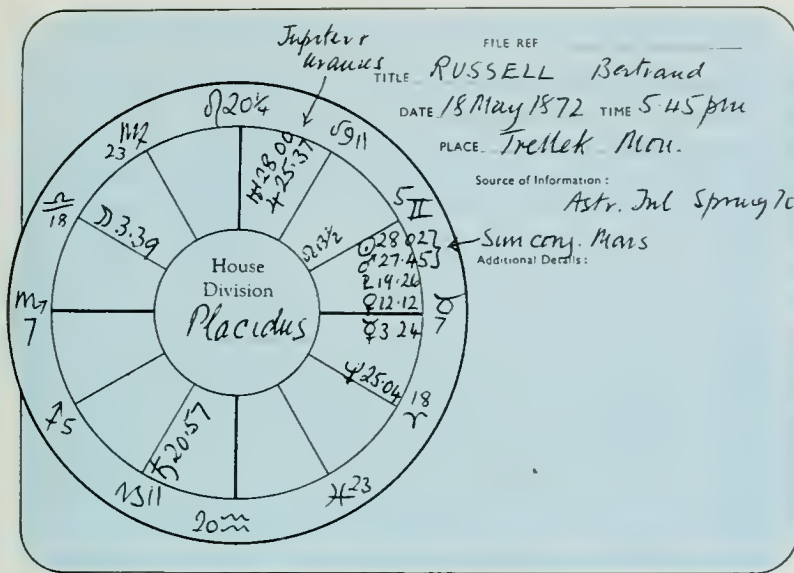 FILE REF
TITLE RUSSELL Bertrand
DATE 18 May 1872 TIME 5.45 pm
PLACE Trellek Mon.
Source of Information:
Astr. Jnl Spring 70
Sun conj. Mars
Additional Details:
Jupiter &
Uranus
♌20¼
♋11
5♊
♉
7
18
♈
♓23
20♒
♑11
♐5
♏
7
♎
18
23♍
♅28.00
♃25.37
☊13½
☉28 02
♂27.45
♇19.26
♀12.12
☿3 24
♆25.04
♄20.57
☽.3.39
House
Division
Placidus